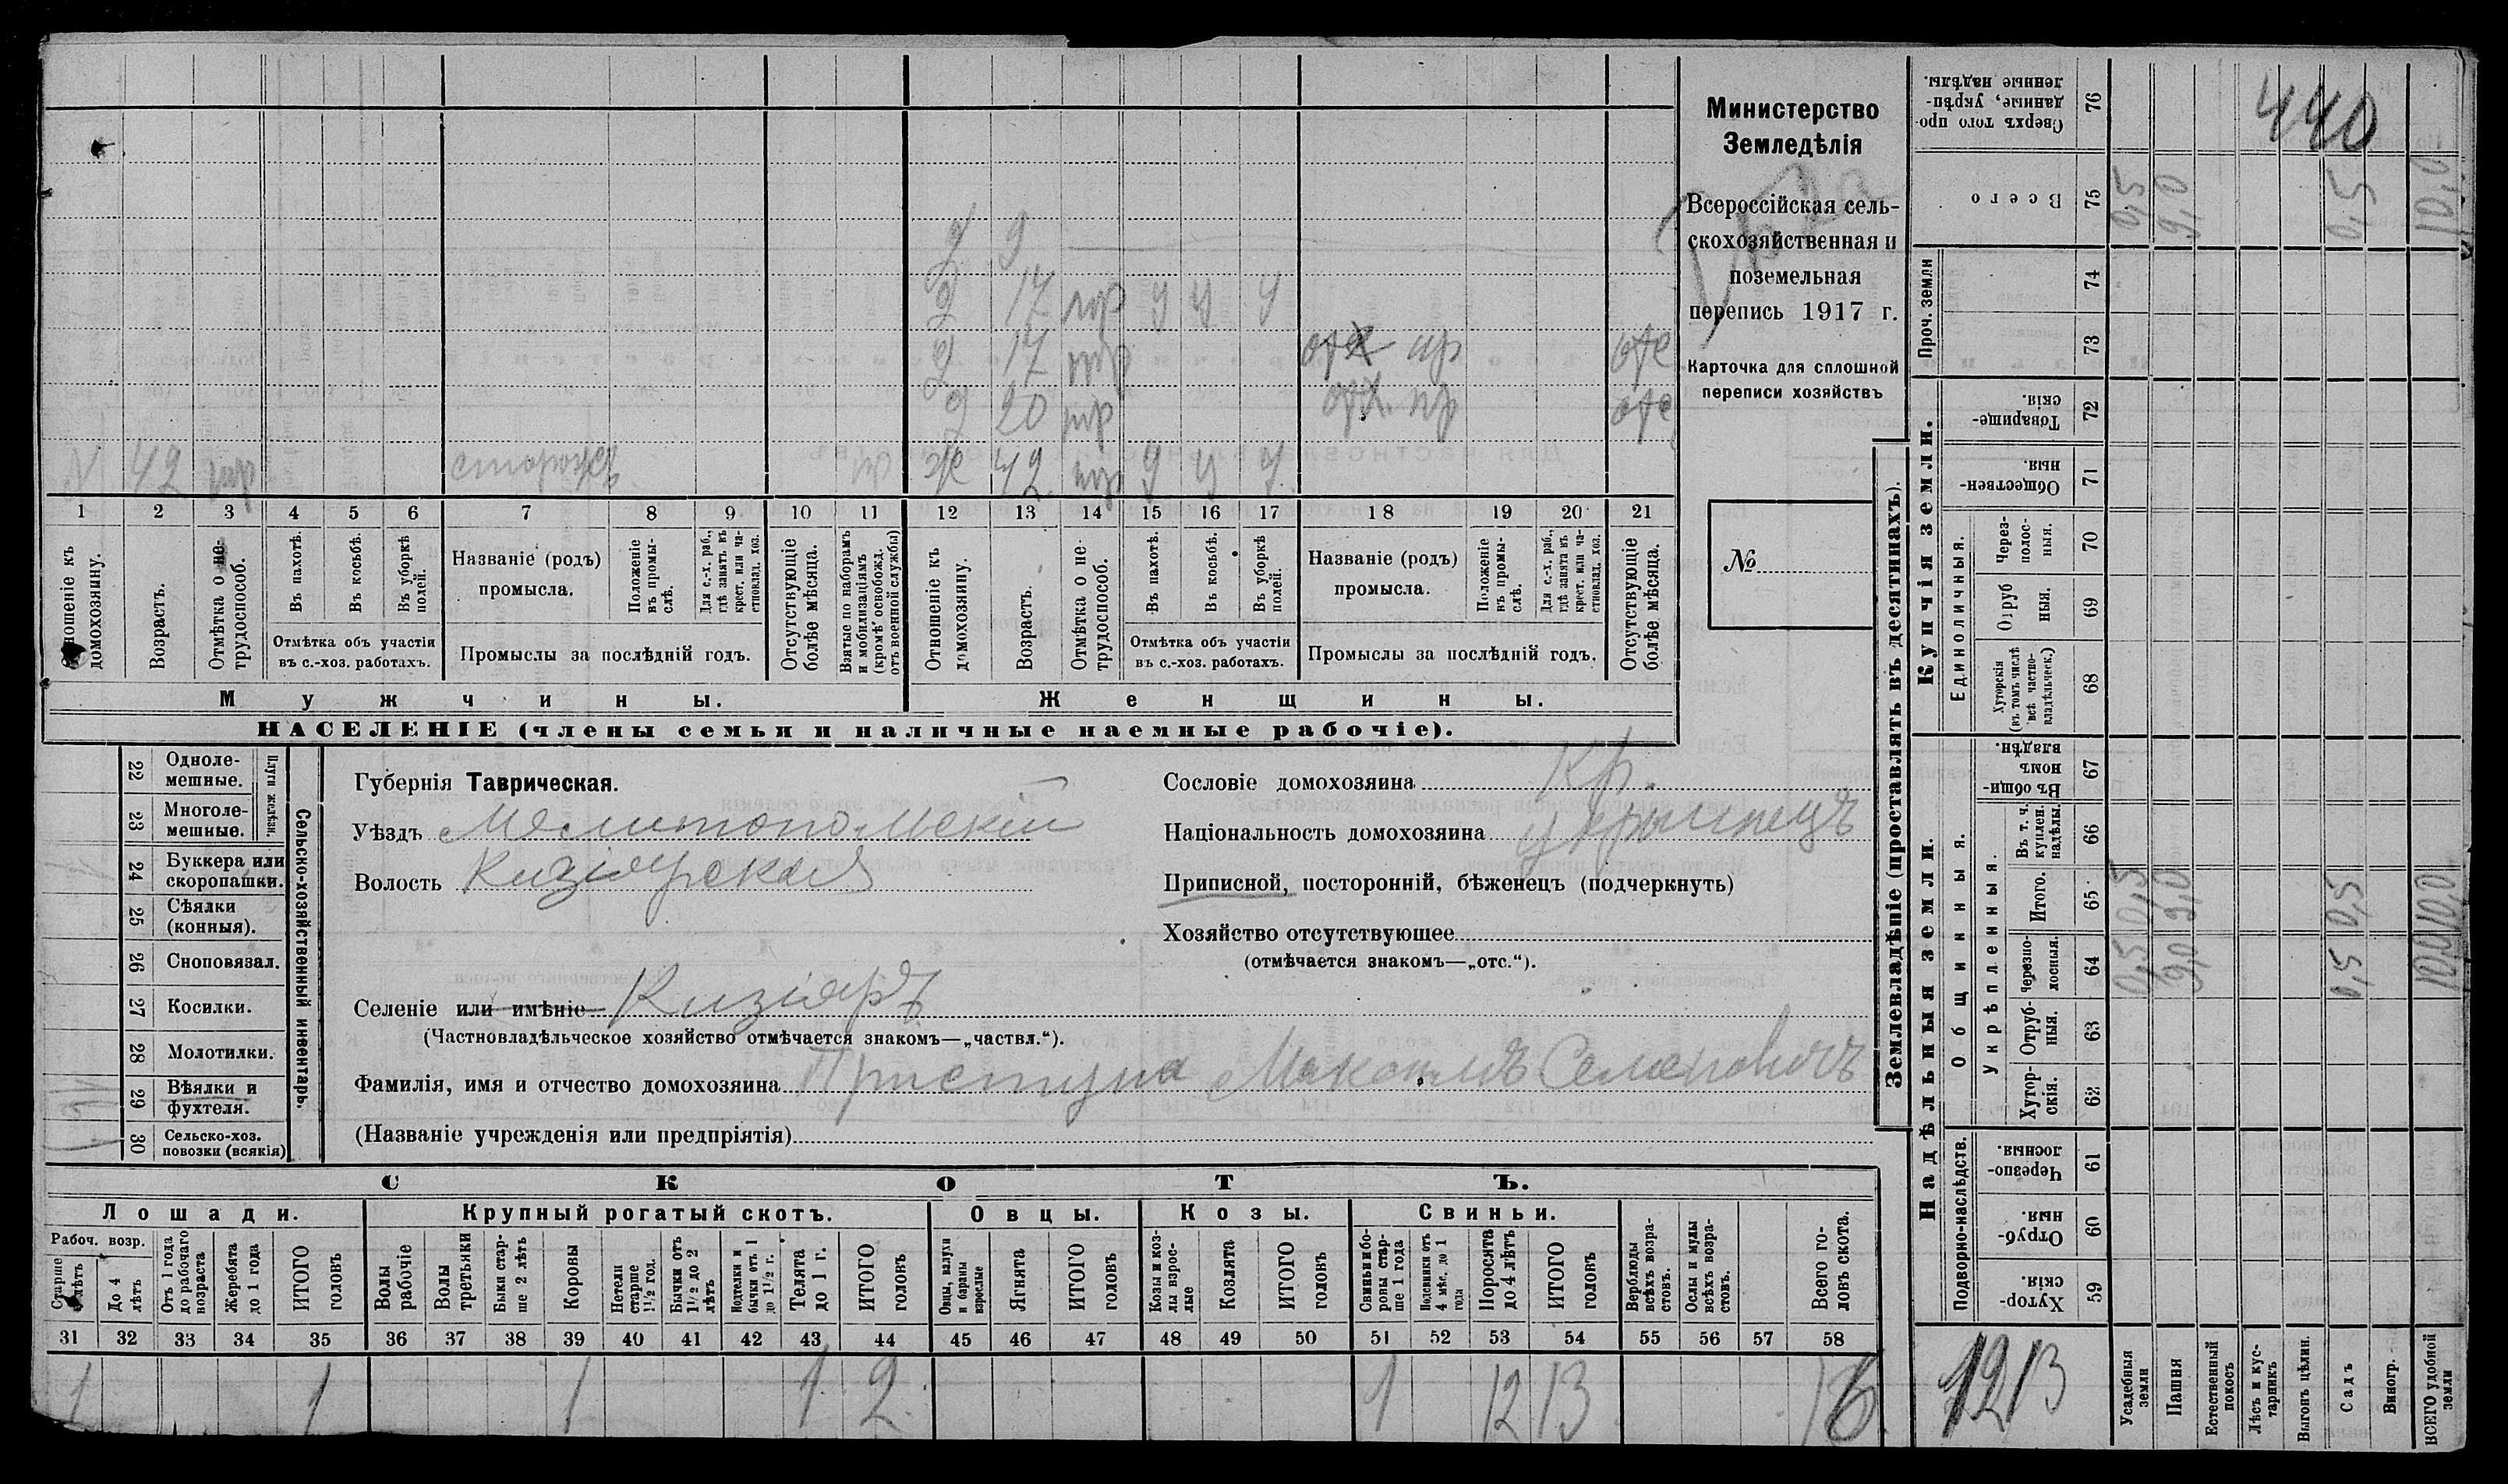 Министерство
Земледѣлія
Всероссійская сель-
скохозяйственная и
поземельная
перепись 1917 г.
Карточка для сплошной
переписи хозяйствъ
№
9
17 у у у
17 отх пр отс
20 отх. пр отс
42 сторожъ ж 42 у у у
1 2 3 4 5 6 7 8 9 10 11 12 13 14 15 16 17 18 19 20 21
Отношеніе къ домохозяину.
Возрастъ.
Отмѣтка о не-трудоспособ.
Въ пахотѣ.
Въ косьбѣ.
Въ уборкѣ полей.
Отмѣтка объ участіи
въ с.-хоз. работахъ.
Названіе (родъ)
промысла.
Положеніе въ промы-слѣ.
Для с.-х. раб., гдѣ занятъ въ крест. или ча-стновлад. хоз.
Промыслы за послѣдній годъ.
Отсутствующіе болѣе мѣсяца.
Взятые по наборамъ и мобилизаціямъ (кромѣ освобожд. отъ военной службы)
Отношеніе къ домохозяину.
Возрастъ.
Отмѣтка о не-трудоспособ.
Въ пахотѣ.
Въ косьбѣ.
Въ уборкѣ полей.
Отмѣтка объ участіи
въ с.-хоз. работахъ.
Названіе (родъ)
промысла.
Положеніе въ промы-слѣ.
Для с.-х. раб., гдѣ занята въ крест. или ча-стновлад. хоз.
Промыслы за послѣдній годъ.
Отсутствующіе болѣе мѣсяца.
Мужчины. Женщины.
НАСЕЛЕНІЕ (члены семьи и наличные наемные рабочіе).
Сельско-хозяйственный инвентарь.
Плуги желѣзн.
22 Одноле-мешные.
23 Многоле-мешные.
24 Буккера или скоропашки.
25 Сѣялки (конныя).
26 Сноповязал.
27 Косилки.
28 Молотилки.
29 Вѣялки и фухтеля.
30 Сельско-хоз. повозки (всякія)
Губернія Таврическая.
Уѣздъ Мелитопольскій
Волость Кизіярская
Селеніе или имѣніе Кизіяръ
(Частновладѣльческое хозяйство отмѣчается знакомъ—„частвл.“).
Фамилія, имя и отчество домохозяина Приступа Максимъ Семеновичъ
(Названіе учрежденія или предпріятія)
Сословіе домохозяина Кр.
Національность домохозяина украинецъ
Приписной, посторонній, бѣженецъ (подчеркнуть)
Хозяйство отсутствующее
(отмѣчается знакомъ—„отс.“).
СКОТЪ.
Лошади. Крупный рогатый скотъ. Овцы. Козы. Свиньи.
Рабоч. возр.
Старше 4 лѣтъ
До 4 лѣтъ
Отъ 1 года до рабочаго возраста
Жеребята до 1 года
ИТОГО головъ
Волы рабочіе
Волы третьяки
Быки стар-ше 2 лѣтъ
Коровы
Нетели старше 1½ год.
Бычки отъ 1½ до 2 лѣтъ
Подтелки и бычки отъ 1 до 1½ г.
Телята до 1 г.
ИТОГО головъ
Овцы, валухи и бараны взрослые
Ягнята
ИТОГО головъ
Козы и коз-лы взрос-лые
Козлята
ИТОГО головъ
Свиньи и бо-ровы стар-ше 1 года
Подсвинки отъ 4 мѣс. до 1 года
Поросята до 4 лѣтъ
ИТОГО головъ
Верблюды всѣхъ возра-стовъ.
Ослы и мулы всѣхъ возра-стовъ.
Всего го-ловъ скота.
31 32 33 34 35 36 37 38 39 40 41 42 43 44 45 46 47 48 49 50 51 52 53 54 55 56 57 58
1 1 1 1 2 1 12 13 16
Землевладѣніе (проставлять въ десятинахъ).
Купчія земли.
Надѣльныя земли.
Сверхъ того про-данные, укрѣп-ленные надѣлы. 76 440
Всего 75 0,5 9,0 0,5 10,0
Проч. земли 74
73
Товарище-скія. 72
Обществен-ныя. 71
Единоличныя.
Через-полос-ныя. 70
Отруб-ныя. 69
Хуторскія (въ томъ числѣ всѣ частно-владѣльческ.) 68
Общинныя.
Въ общин-номъ владѣн. 67
Укрѣпленныя.
Въ т. ч. куплен. надѣлы. 66
Итого. 65 0,5 9,0 0,5 10,0
Черезпо-лосныя. 64 0,5 9,0 0,5 10,0
Отруб-ныя. 63
Хутор-скія. 62
Подворно-наслѣдств.
Черезпо-лосныя 61
Отруб-ныя. 60
Хутор-скія. 59
Усадебныя земли
Пашня
Естественный покосъ
Лѣсъ и кус-тарникъ
Выгонъ цѣлин.
Садъ
Виногр.
ВСЕГО удобной земли